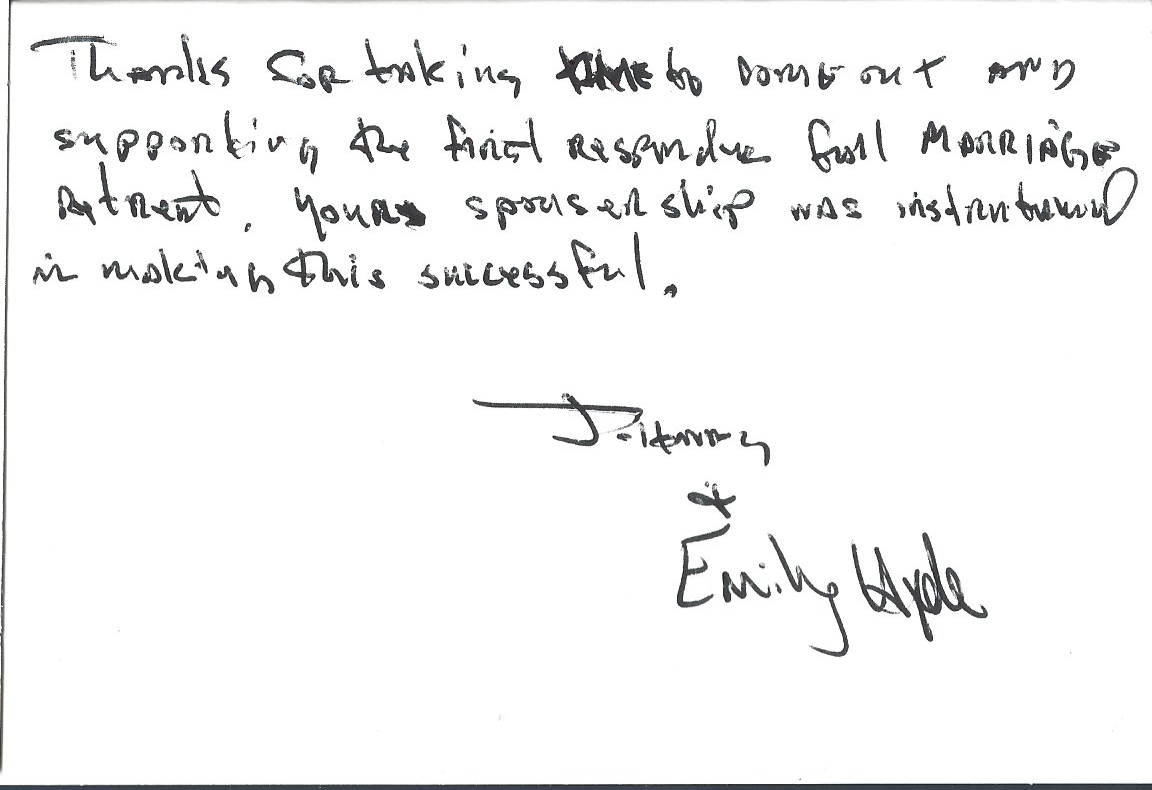 Thanks for taking time to come out and
supporting the first responder fall MARRIAGE
Retreat. Your sponsership was instrumental
in making this successful.
J.
&
Emily Hyde